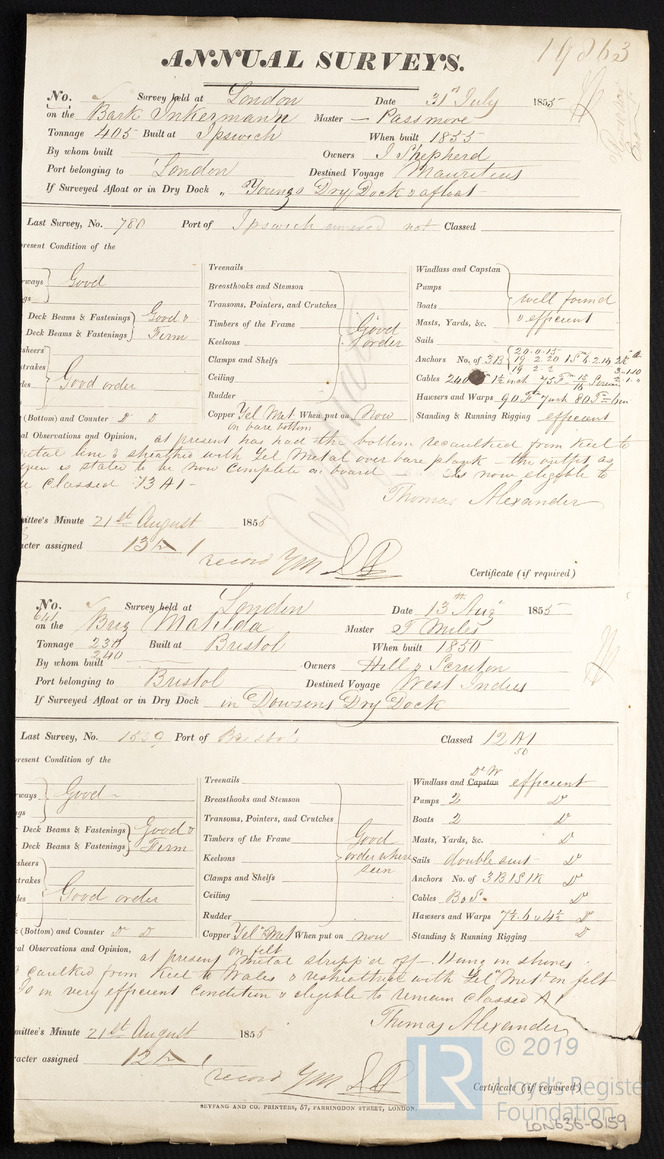 ANNUAL SURVEYS. 19863
No. Survey held at London Date 31st July 1855
on the Bark Inkermann Master - Passmore
Tonnage 405 Built at Ipswich When built 1855
By whom built Owners J Shepherd
Port belonging to London Destined Voyage Mauritius
If Surveyed Afloat or in Dry Dock " Youngs Dry Dock & afloat
Last Survey, No. 780 Port of Ipswich not Classed
resent Condition of the
Treenails Windlass and Capstan
rways Good Breasthooks and Stemson Pumps
gs Transoms, Pointers, and Crutches Boats well found
Deck Beams & Fastenings Good & Timbers of the Frame Good Masts, Yards, &c. & efficient
Deck Beams & Fastenings Firm Keelsons order Sails
sheers Clamps and Shelfs Anchors No. of 3B
trakes Good order Ceiling Cables 240
les Rudder Hawsers and Warps 90
(Bottom) and Counter D D Copper Yel Met When put on Now Standing & Running Rigging efficient
on bare bottom
al Observations and Opinion, as present has had the bottom recaulked from Keel to
metal line & sheathed with Yel Metal over bare plank - the outfit as
given is stated to be now complete on board - Is now eligible to
be Classed 13 A1 -
Thomas Alexander
mittee's Minute 21st August 1855
racter assigned 13 A 1
record YM
Certificate (if required)
No. Survey held at London Date 13th Aug 1855
641
on the Brig Matilda Master T Miles
Tonnage 230 Built at Bristol When built 1850
240
By whom built Owners Hill & Scruton
Port belonging to Bristol Destined Voyage West Indies
If Surveyed Afloat or in Dry Dock in Dowsons Dry Dock
Last Survey, No. Port of Bristol Classed 12 A1
50
resent Condition of the
Treenails Windlass and Capstan efficient
rways Good - Breasthooks and Stemson Pumps 2 Do
gs Transoms, Pointers, and Crutches Boats 2 Do
Deck Beams & Fastenings Good & Timbers of the Frame Good Masts, Yards, &c. Do
Deck Beams & Fastenings Firm Keelsons order where seen Sails double suit Do
sheers Clamps and Shelfs Anchors No. of 3B 1S 1K Do
trakes Good order Ceiling Cables Do
les Rudder Hawsers and Warps Do
(Bottom) and Counter D D Copper Yel Met When put on now Standing & Running Rigging Do
on felt
al Observations and Opinion, at present metal stripp'd off -
caulked from Keel to Wales & resheathed with Yel Met on felt
Is in very efficient condition & eligible to remain classed A1
Thomas Alexander
mittee's Minute 21st August 1855
racter assigned 12 A 1
record YM
Certificate (if required)
SEYFANG AND CO. PRINTERS, 57, FARRINGDON STREET, LONDON.
LR © 2019
Lloyd's Register
Foundation
LON636-0159